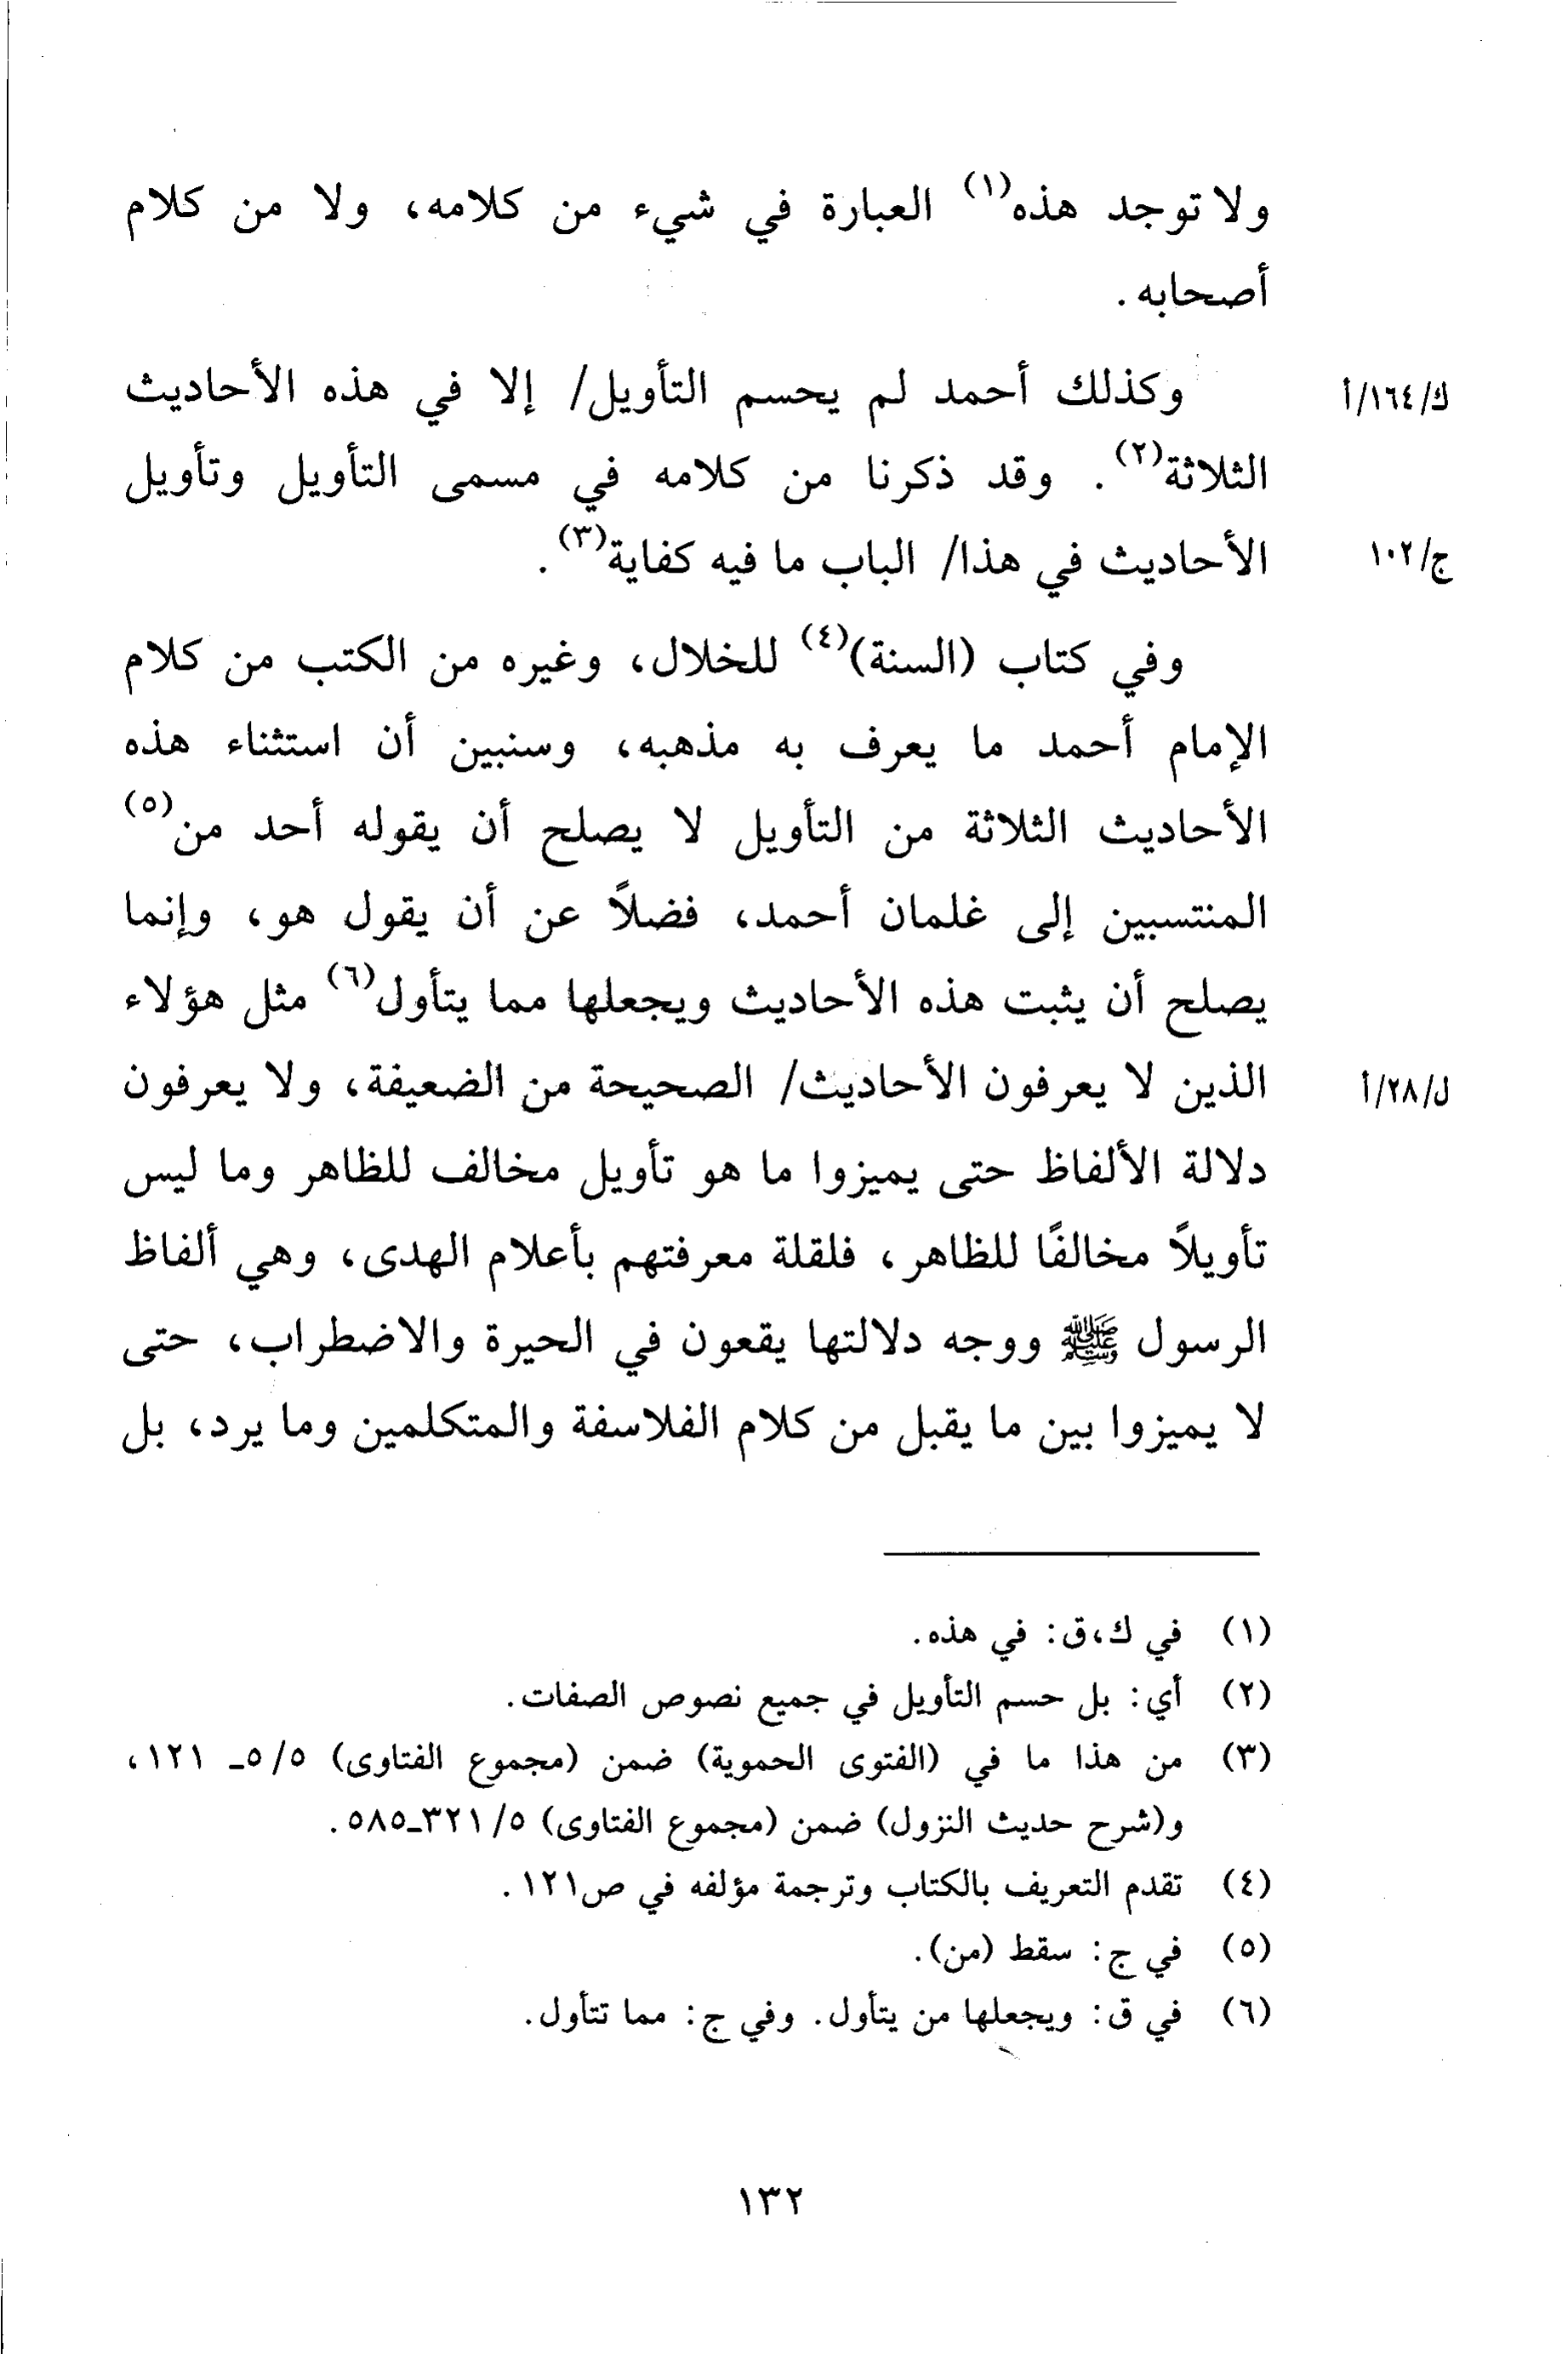 ولا توجد هذه(١) العبارة في شيء من كلامه، ولا من كلام
أصحابه .
وكذلك أحمد لم يحسم التأويل/ إلا في هذه الأحاديث
ك/١٦٤/أ
الثلاثة(٢) . وقد ذكرنا من كلامه في مسمى التأويل وتأويل
الأحاديث في هذا/ الباب ما فيه كفاية(٣) .
ج/١٠٢
وفي كتاب (السنة)(٤) للخلال، وغيره من الكتب من كلام
الإمام أحمد ما يعرف به مذهبه، وسنبين أن استثناء هذه
الأحاديث الثلاثة من التأويل لا يصلح أن يقوله أحد من(٥)
المنتسبين إلى غلمان أحمد، فضلاً عن أن يقول هو، وإنما
يصلح أن يثبت هذه الأحاديث ويجعلها مما يتأول(٦) مثل هؤلاء
الذين لا يعرفون الأحاديث/ الصحيحة من الضعيفة، ولا يعرفون
ل/٢٨/أ
دلالة الألفاظ حتى يميزوا ما هو تأويل مخالف للظاهر وما ليس
تأويلاً مخالفًا للظاهر، فلقلة معرفتهم بأعلام الهدى، وهي ألفاظ
الرسول ﷺ ووجه دلالتها يقعون في الحيرة والاضطراب، حتى
لا يميزوا بين ما يقبل من كلام الفلاسفة والمتكلمين وما يرد، بل
(١) في ك،ق: في هذه.
(٢) أي: بل حسم التأويل في جميع نصوص الصفات.
(٣) من هذا ما في (الفتوى الحموية) ضمن (مجموع الفتاوى) ٥/٥ـ ١٢١،
و(شرح حديث النزول) ضمن (مجموع الفتاوى) ٥/ ٣٢١ـ٥٨٥.
(٤) تقدم التعريف بالكتاب وترجمة مؤلفه في ص١٢١.
(٥) في ج: سقط (من).
(٦) في ق: ويجعلها من يتأول. وفي ج: مما تتأول.
١٣٢